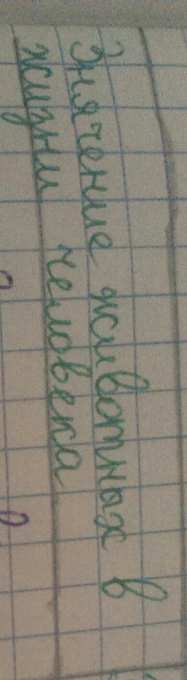 Значение животных в
жизни человека